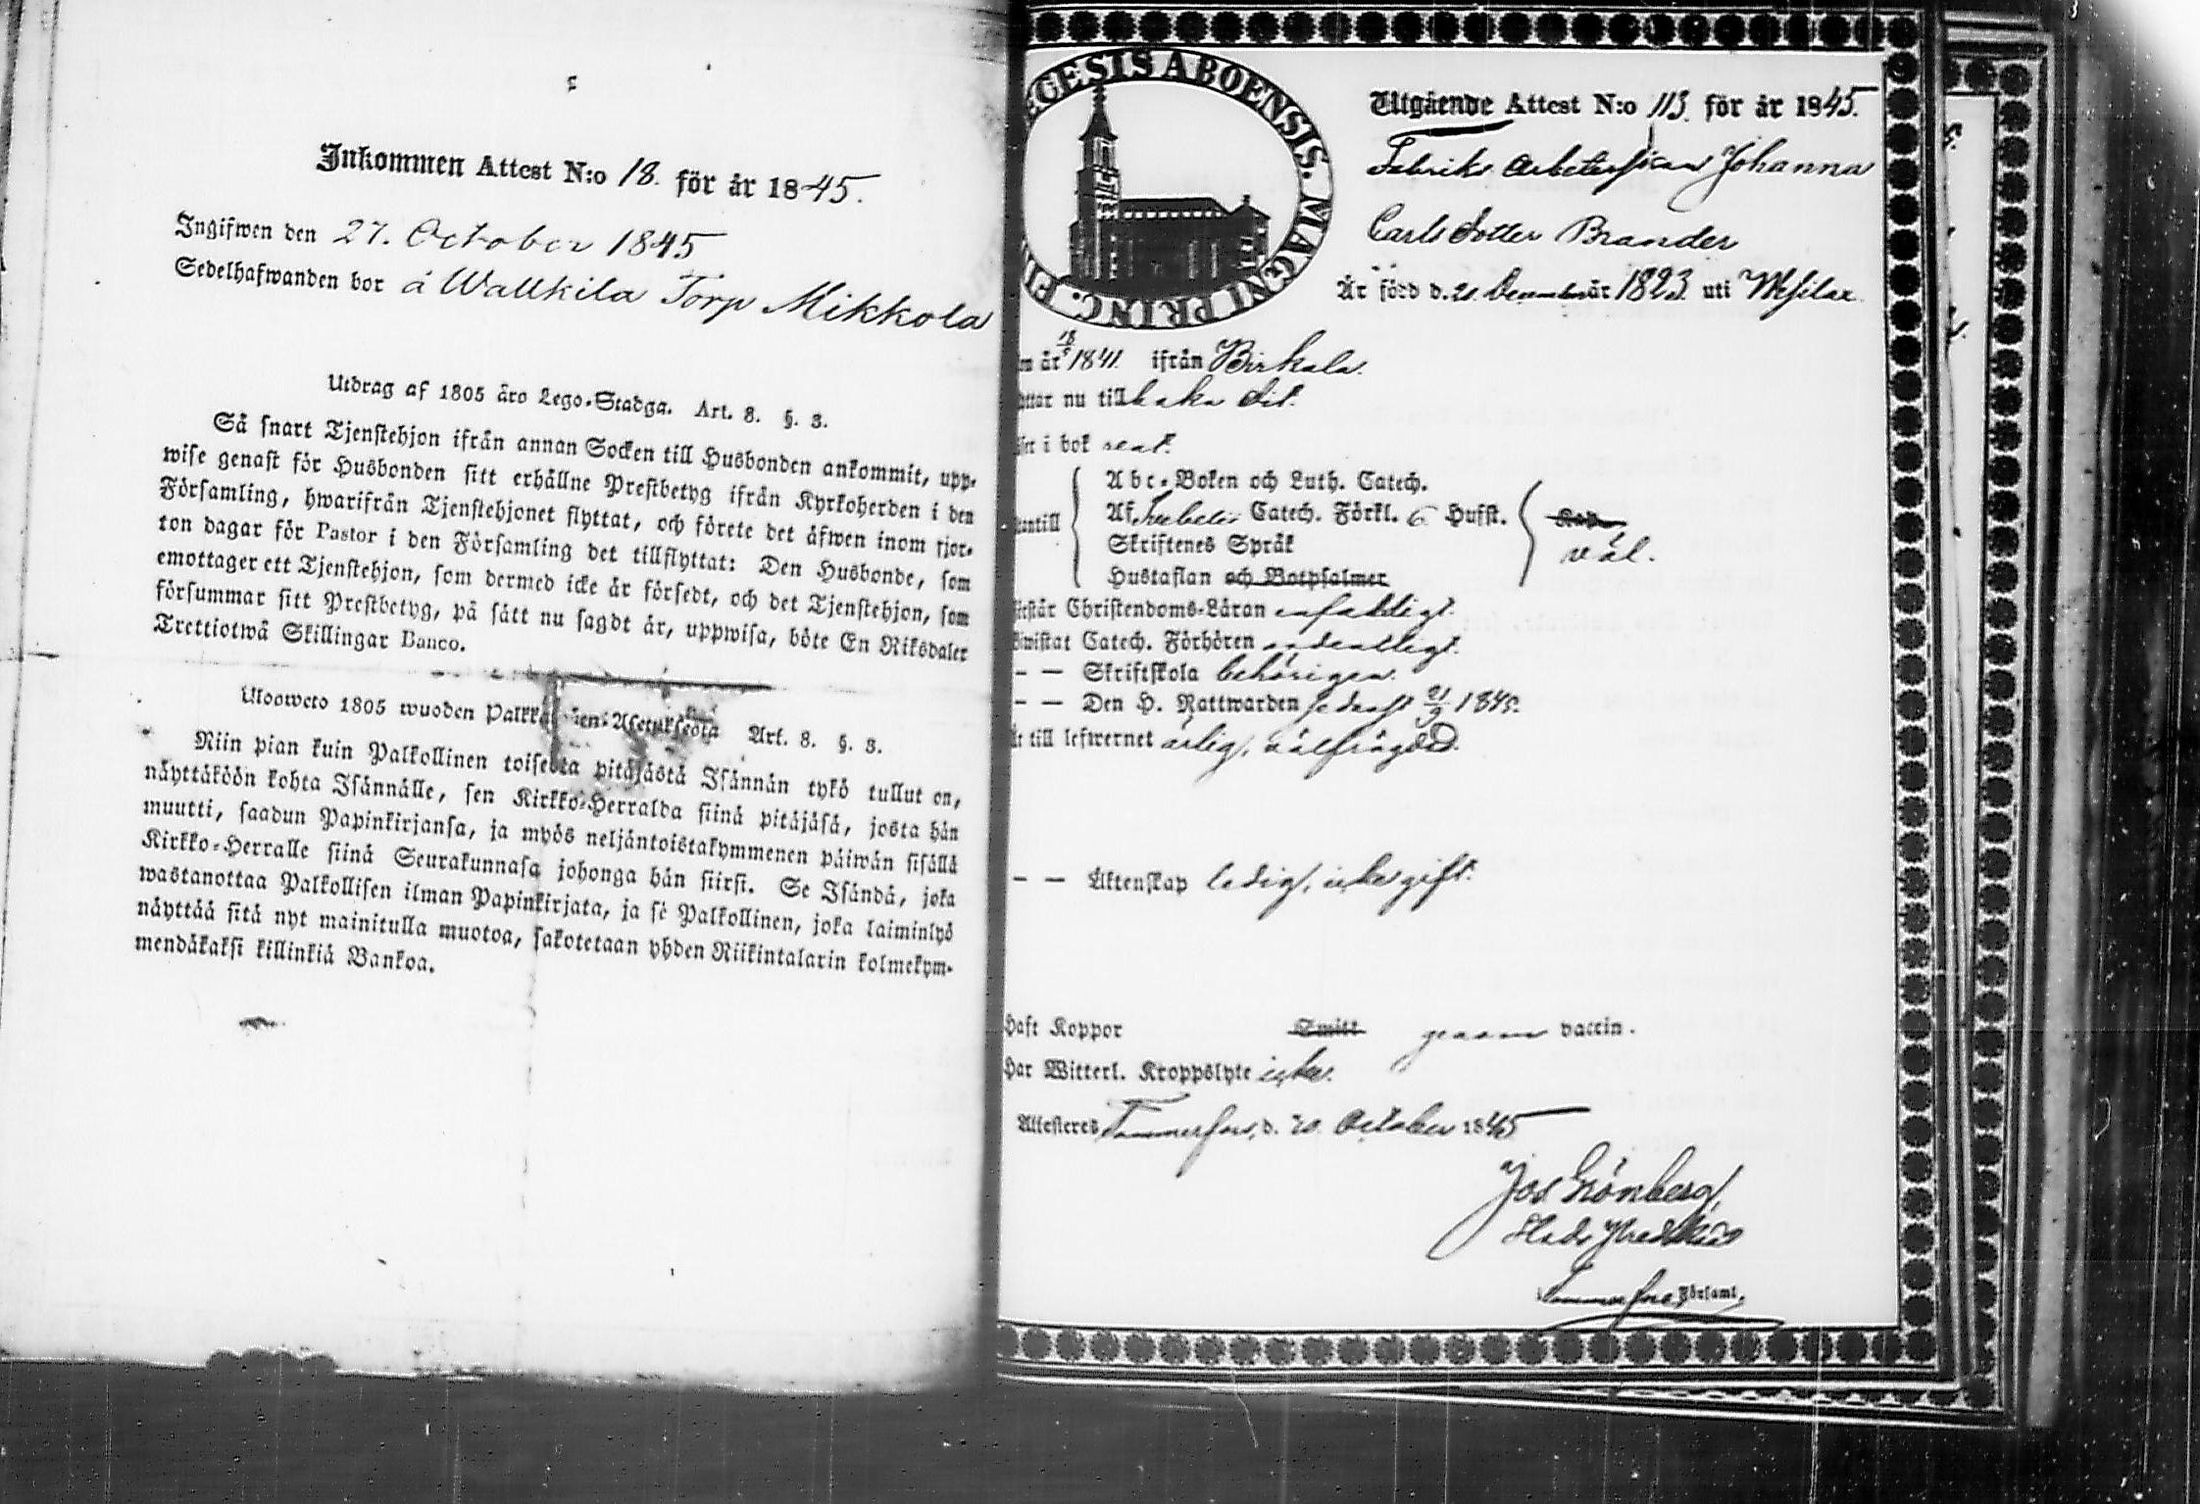 Inkommen Attest N:o 18. för år 1845.
Ingifwen den 27. October 1845
Sedelhafwanden bor å Wallkila Torp Mikkola
Utdrag af 1805 års Lego-Stadga. Art. 8. §. 3.
Så snart Tjenstehjon ifrån annan Socken till Husbonden ankommit, upp-
wise genast för Husbonden sitt erhållne Prestbetyg ifrån Kyrkoherden i den
Församling, hwarifrån Tjenstehjonet flyttat, och förete det äfwen inom fjor-
ton dagar för Pastor i den Församling det tillflyttat: Den Husbonde, som
emottager ett Tjenstehjon, som dermed icke är försedt, och det Tjenstehjon, som
försummar sitt Prestbetyg, på sätt nu sagdt är, uppwisa, böte En Riksdaler
Trettiotwå Skillingar Banco.
Uloosweto 1805 wuoden Art. 8. §. 3.
Niin pian kuin Palkollinen toisesta pitäjästä Isännän tykö tullut on,
näyttäköön kohta Isännälle, sen Kirkko-Herralda siinä pitäjäsä, josta hän
muutti, saadun Papinkirjansa, ja myös neljäntoistakymmenen päiwän sisällä
Kirkko-Herralle siinä Seurakunnasa johonga hän siirsi. Se Isändä, joka
wastanottaa Palkollisen ilman Papinkirjata, ja se Palkollinen, joka laiminlyö
näyttää sitä nyt mainitulla muotoa, sakotetaan yhden Riikintalarin kolmekym-
mendäkaksi killinkiä Bankoa.
EGESIS ABOENSIS. MAGNI PRINC. FIN
Utgående Attest N:o 113. för år 1845.
Fabriks Johanna
Carls dotter Brander
Är född d. 21 December år 1823 uti Wesilax
år 18/5 1841. ifrån Birkala.
nu tillbaka dit.
i bok rent.
Abc-Boken och Luth. Catech.
Af Catech. Förkl. Hufst.
Skriftenes Språk
Hustaflan och Botpsalmer
väl.
Christendoms-Läran enfaldigt.
Catech. Förhören ordentligt.
– – Skriftskola behörigen.
– – Den H. Nattwarden sednast 21/9 1845.
till lefwernet ärlig, välfrägdad.
– – Äktenskap ledig, icke gift.
Haft Koppor genom vaccin.
Har Witterl. Kroppslyte icke.
Attesteras Tammerfors, d. 20. October 1845
Jos Grönberg,
Tammerfors Församl.